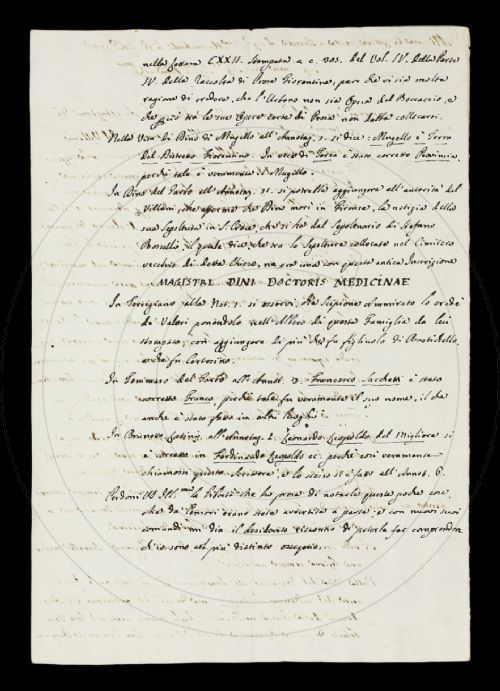 nella lettera CXXII. Stampata a c. 303. del Vol. IV. della Parte
IV. della Raccolta di Prose Fiorentine, pare che vi sia molta
ragione di credere, che l'Urbano non sia Opera del Boccaccio, e
che perciò tra le sue Opere certe di Prosa non debba collocarsi.
Nella Vita di Dino di Mugello all'Annotaz. 1. si dice: Mugello è Terra
del Distretto Fiorentino. In vece di Terra è stato corretto Provincia,
perchè tale è veramente il Mugello.
In Dino del Garbo all'Annotaz. 11. si potrebbe aggiungere all'autorità del
Villani, che afferma che Dino morì in Firenze, la notizia della
sua Sepoltura in S. Croce, che si ha dal Sepoltuario di Stefano
Rosselli, il quale dice che tra le Sepolture collocate nel Cimitero
vecchio di detta Chiesa, ne era una con questa antica Inscrizione
MAGISTAL DINI DOCTORIS MEDICINAE
In Torrigiano alla Not. 1. si osservi, che Scipione Ammirato lo crede
de' Valori ponendolo nell'Albero di questa Famiglia da lui
stampato, con aggiungere di più che fu figliuolo di
e da fu Certosino.
In Tommaso del Garbo all'Annot. 3. Francesco Sacchetti è stato
corretto Franco, perchè tale fu veramente il suo nome, il che
anche è stato fatto in altri luoghi.
In Brunetto Latini, all'Annotaz. 2. Leonardo Leopoldo del Migliore si
è corretto in Ferdinando Leopoldo ec. perchè così veramente
chiamossi questo Scrittore, e lo stesso si è fatto all'Annot. 6.
Perdoni VS Ill.ma la libertà che ho presa di notarle queste poche cose,
che da' Censori erano state avvertite a parte; e con nuovi suoi
comandi mi dia il desiderato riscontro di poterle far comprendere
ch'io sono col più distinto ossequio.